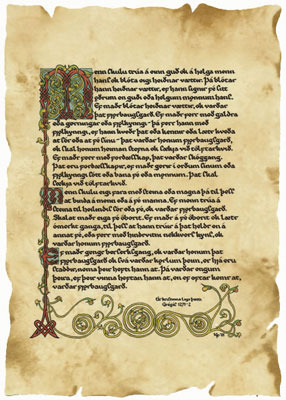 Menn skulu trúa á einn guð ok á helga menn
hans ok blóta eigi heiðnar vættir. Þá blótar
hann heiðnar vættir, er hann signar fé sitt
öðrum en guði eða helgum mönnum hans.
Ef maðr blótar heiðnar vættir, ok varðar
þat fjörbaugsgarð. Ef maðr ferr með galdra
eða gerningar eða fjölkyngi - þá ferr hann með
fjölkyngi, ef hann kveðr þat eða kennir eða lætr kveða
at sér eða at fé sínu - þat varðar honum fjörbaugsgarð,
ok skal honum heiman stefna ok sækja við tólftarkvið.
Ef maðr ferr með fordæðuskap, þat varðar skóggang.
Þat eru fordæðuskapir, ef maðr gerir í orðum sínum eða
fjölkyngi sótt eða bana fé eða mönnum. Þat skal
sækja við tólftarkvið.
Menn skulu eigi fara með steina eða magna þá til þess
at binda á menn eða á fé manna. Ef menn trúa á
steina til heilindis sér eða fé, ok varðar fjörbaugsgarð.
Skalat maðr eiga fé óborit. Ef maðr á óborit ok lætr
ómerkt ganga, til þess at hann trúir á þat heldr en á
annat fé, eða ferr með hindrvitni nekkverju kyni, ok
varðar honum fjörbaugsgarð.
Ef maðr gengr berserksgang, ok varðar honum þat
fjörbaugsgarð ok svá varðar körlum þeim, er hjá eru
staddir, nema þeir hepti hann at. Þá varðar engum
þeira, ef þeir vinna heptan hann at, en ef optar kömr at,
varðar fjörbaugsgarð.
Kristinna laga þáttr